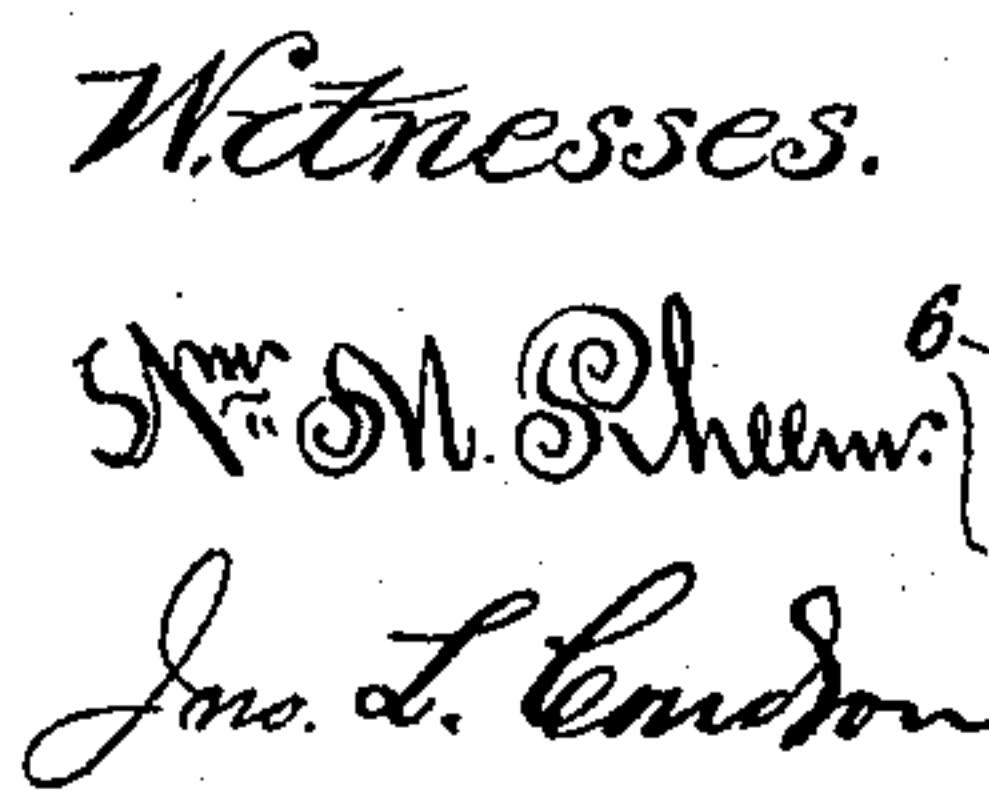 Witnesses.
Wm M. Rheem.
Jno. L. Condron